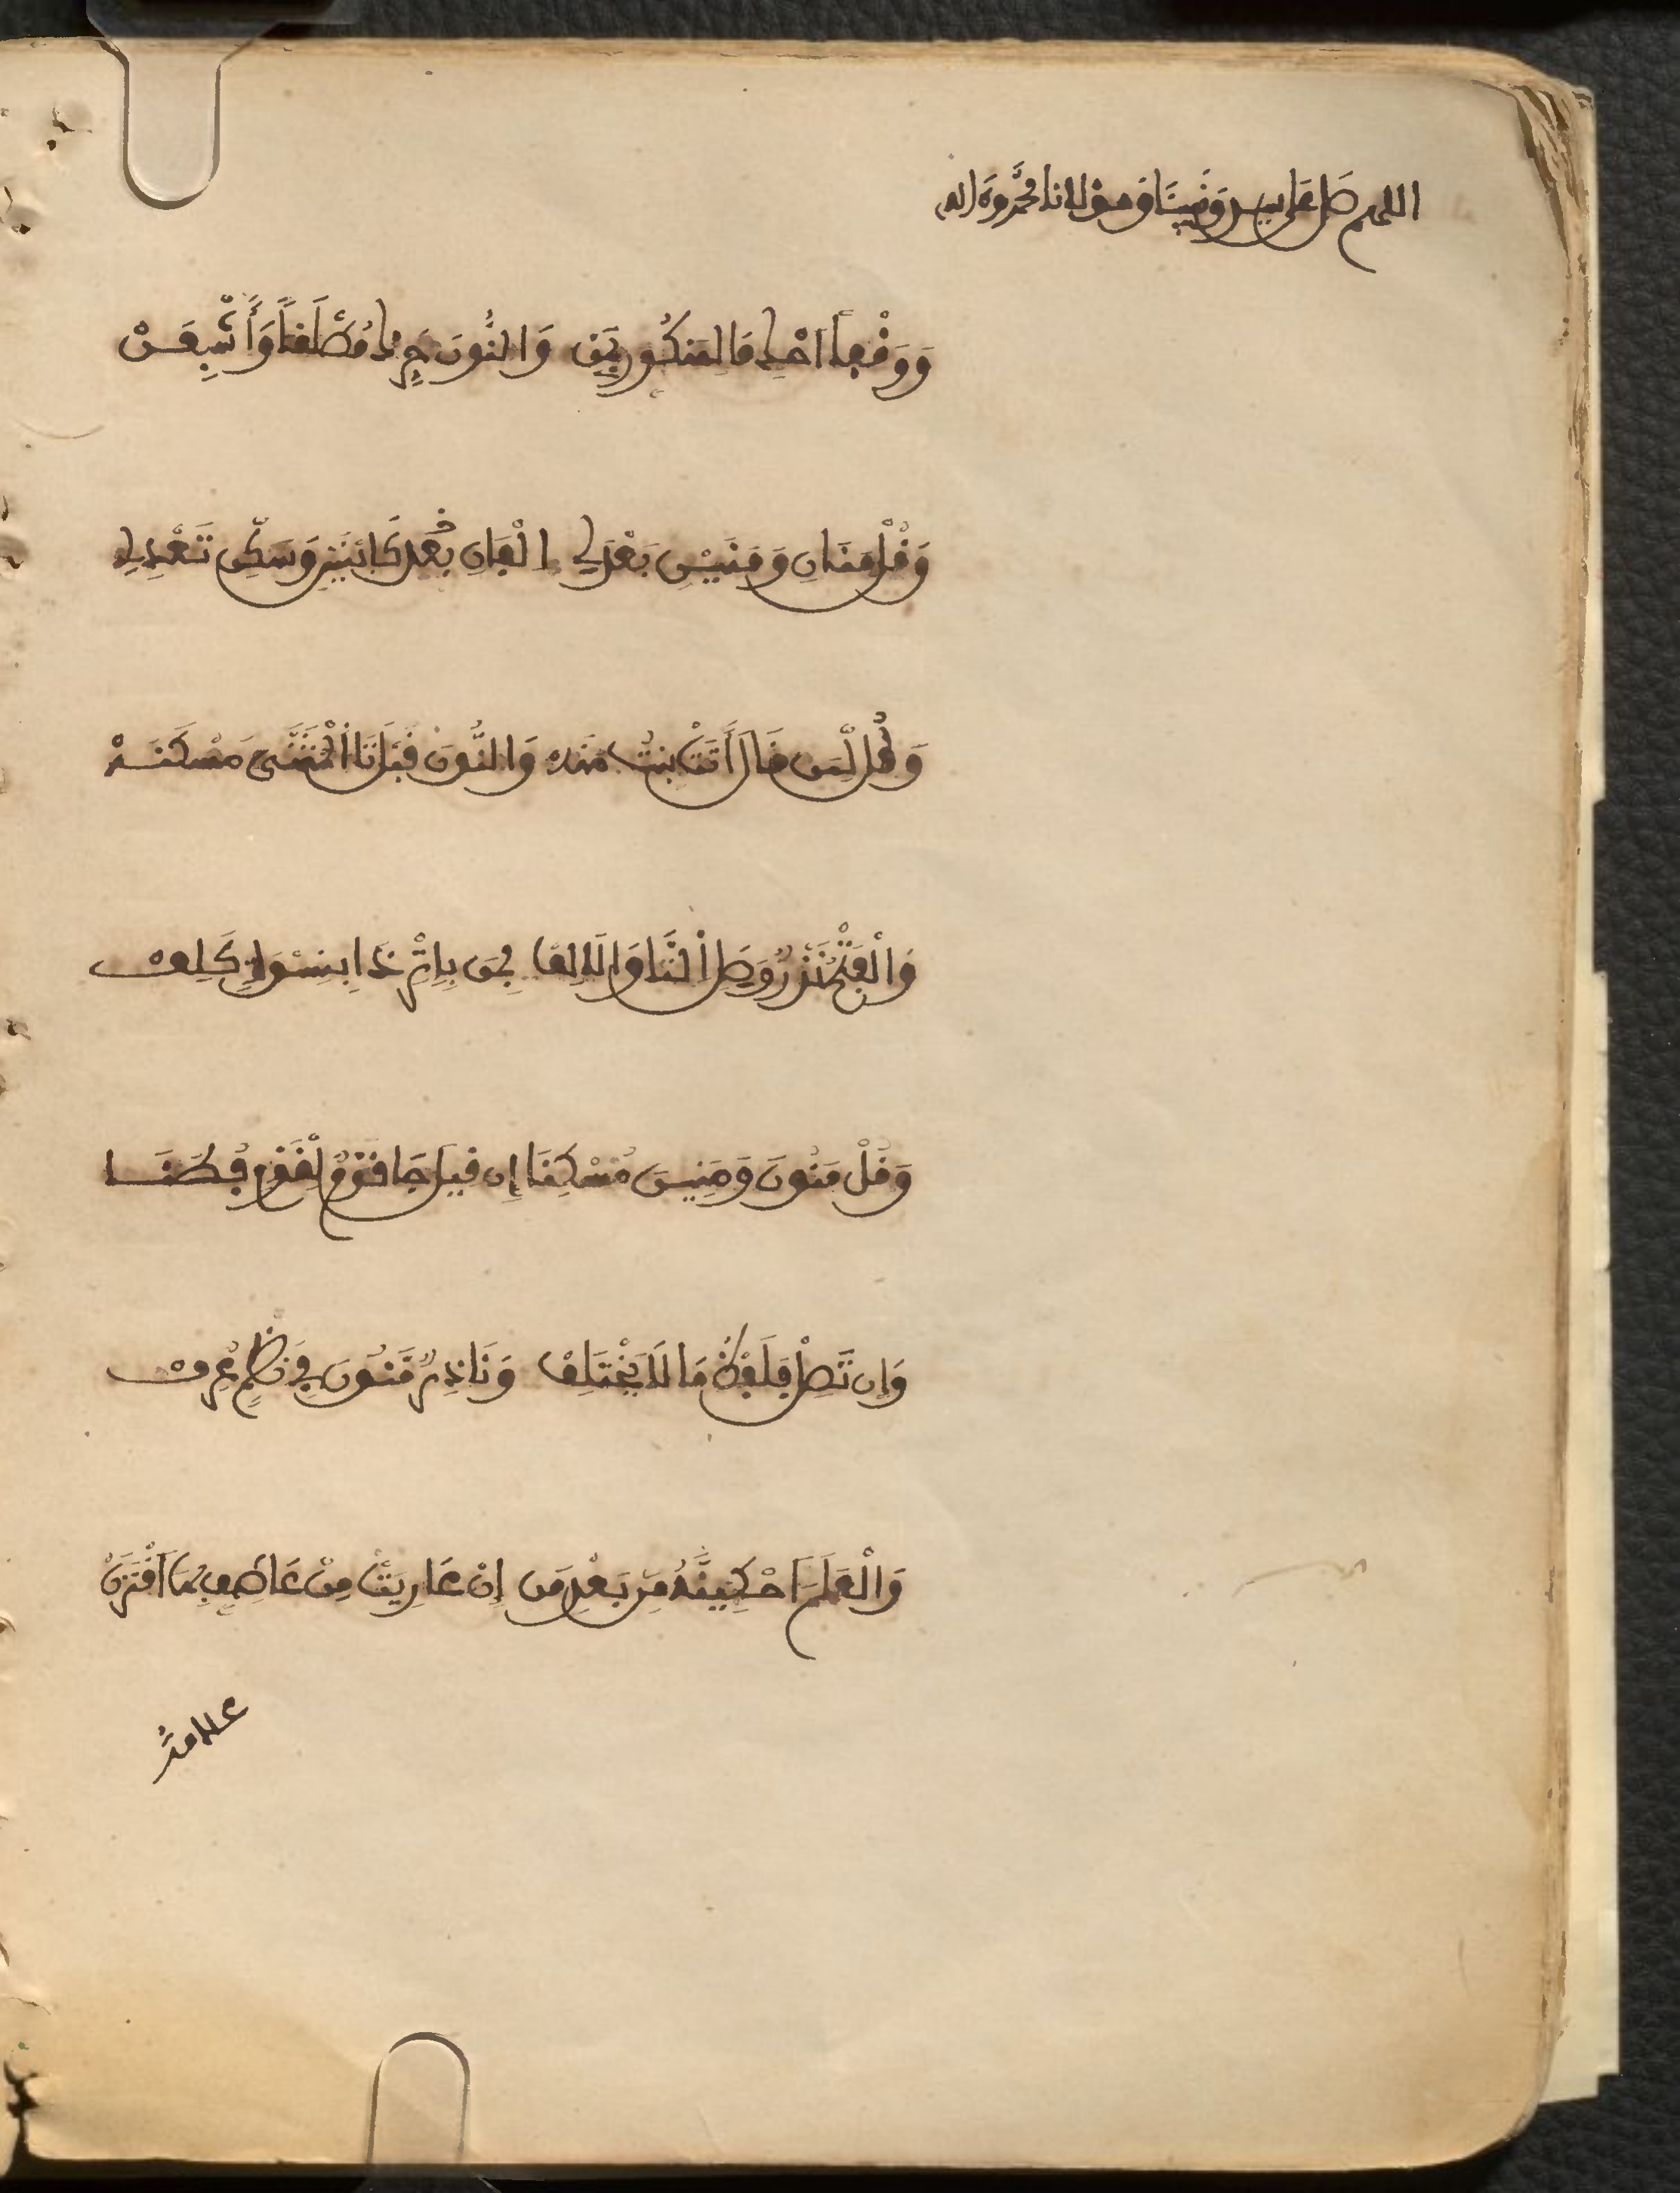 اللهم صل على سيدنا ونبينا ومولانا محمد وءاله
وَوَقْفاً احْكِ مَا لِمَنكُورٍ بِمَن وَالنُّونَ حَرِّكْ مُطْلَقاً وَأَشْبِعَنْ
وَقُلْ مَنَانِ وَمَنَيْنِ بَعْدَ لِي إِلْفَانِ بِابْنَيْنِ وَسَكِّنْ تَعْدِلِ
وَقُل لِّمَن قَالَ أَتَتْ بِنتٌ مَنَهْ وَالنُّونَ قَبْلَ تَا الْمُثَنَّى مُسْكَنَهْ
وَالْفَتْحُ نَزْرٌ وَصِلِ التَّا وَالْأَلِفْ بِمَن بِإِثْرِ ذَا بِنِسْوَةٍ كَلِفْ
وَقُلْ مَنُونَ وَمَنِينَ مُسْكِنَا إِن قِيلَ جَا قَوْمٌ لِقَوْمٍ فُطَنَا
وَإِن تَصِلْ فَلَفْظُ مَن لَا يَخْتَلِفْ وَنَادِرٌ مَنُونَ فِي نَظْمٍ عُرِفْ
وَالْعَلَمَ احْكِيَنَّهُ مِن بَعْدِ مَن إِنْ عَرِيَتْ مِنْ عَاطِفٍ بِهَا اقْتَرَنْ
علامة